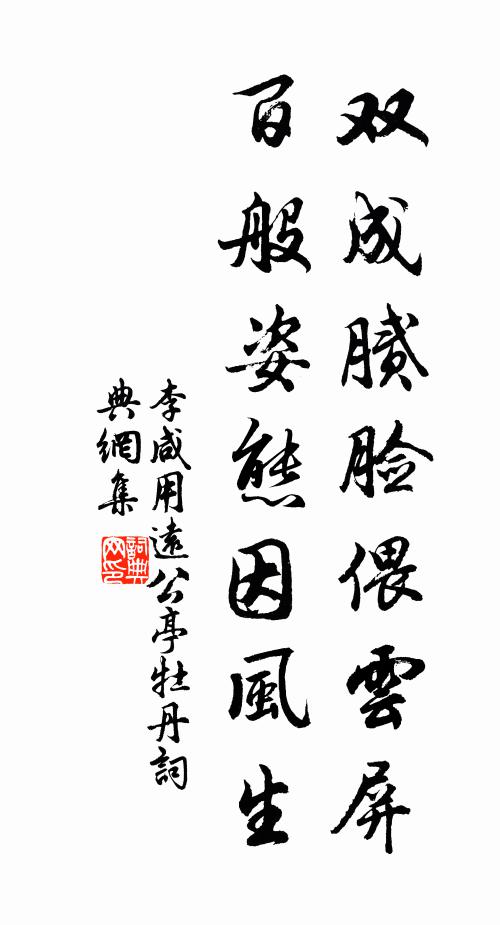 双成膩脸偎雲屏
百般姿態因風生
李咸用遠公亭牡丹詞
典網集
詞典網印